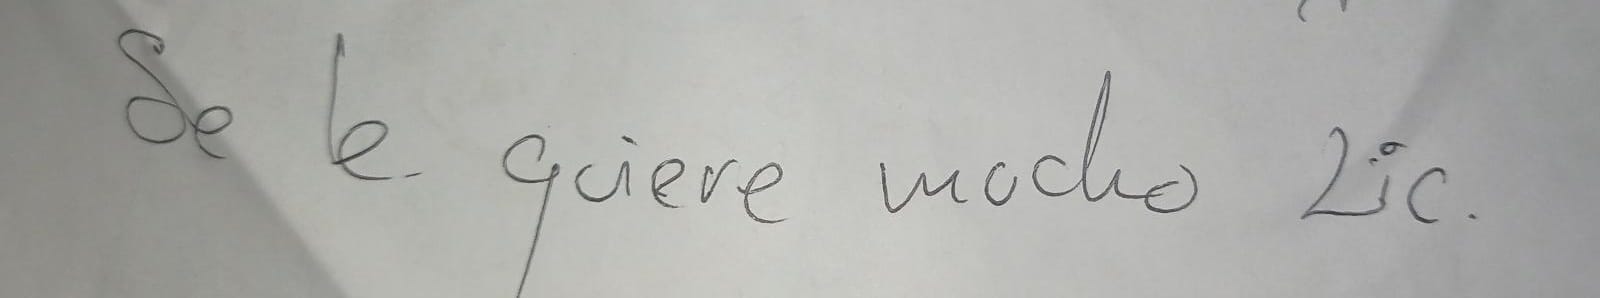 Se le quiere mucho Lic.